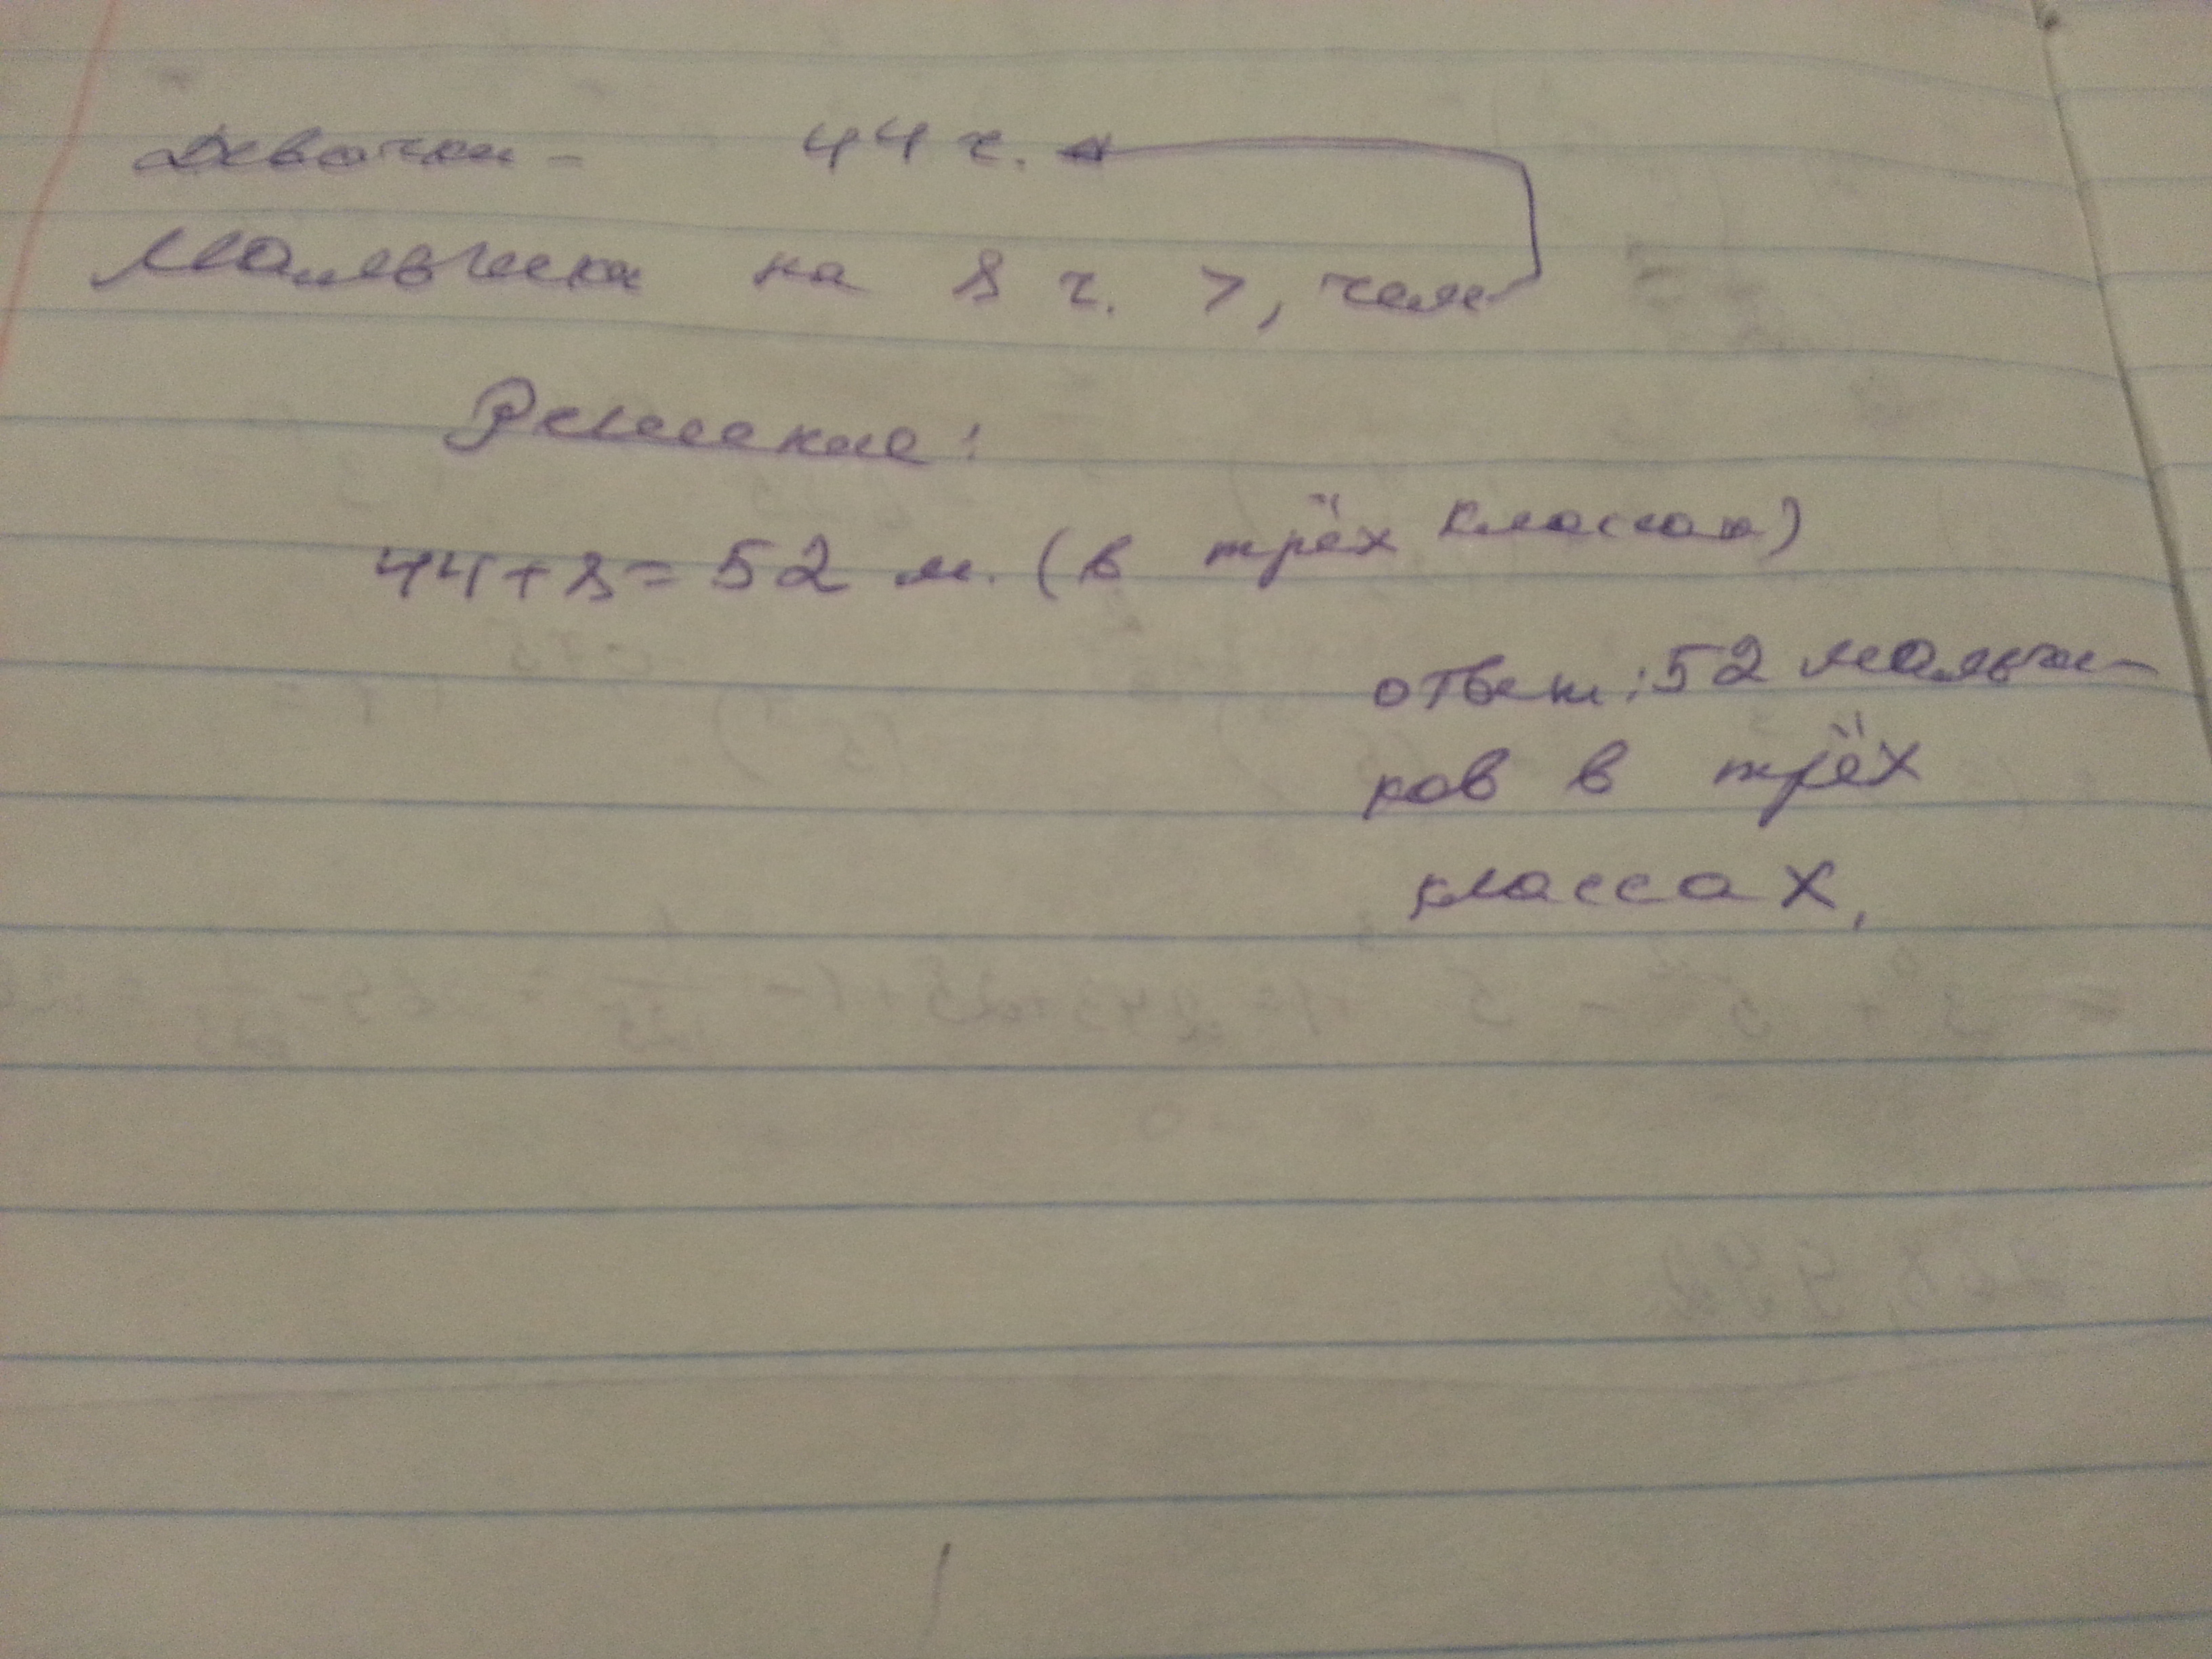 Девочки - 44 ч.
Мальчики на 8 ч. >, чем
Решение:
44+8=52 м. (в трёх классах)
ответ: 52 мальчи-
ков в трёх
классах.